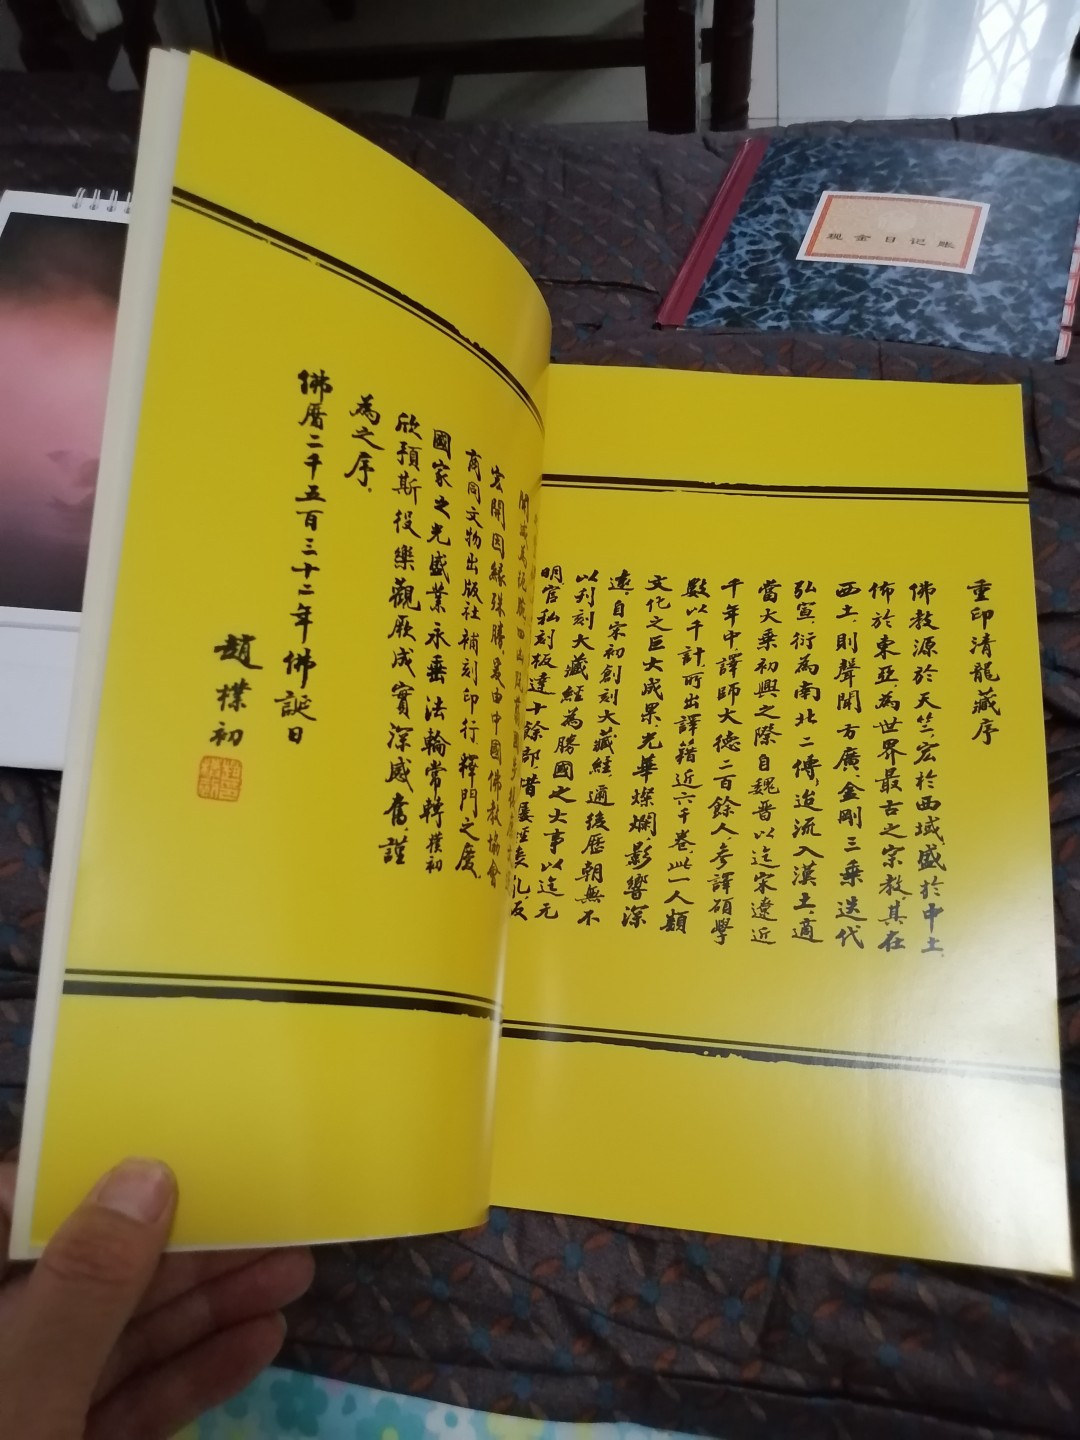 重印清龍藏序
佛教源於天竺,宏於西域,盛於中土,
佈於東亞,為世界最古之宗教,其在
西土,則聲聞方廣,金剛三乘迭代
弘宣,衍為南北二傳,迨流入漢土,適
當大乘初興之際自魏晉以迄宋遼近
千年中,譯師大德二百餘人,考譯碩學
數以千計,所出譯籍近六千卷,此一人類
文化之巨大成果,光華燦爛,影響深
遠,自宋初創刻大藏經,迺後歷朝無不
以刋刻大藏經為勝國之大事以迄元
明官私刻板達十餘部,惜屢經
宏開因緣殊勝,爰由中國佛教協會
商同文物出版社補刻印行釋門之慶,
國家之光盛業永垂法輪常轉樸初
欣預斯役樂觀厥成實深感奮,謹
為之序.
佛曆二千五百三十二年佛誕日
趙樸初
现金日记账